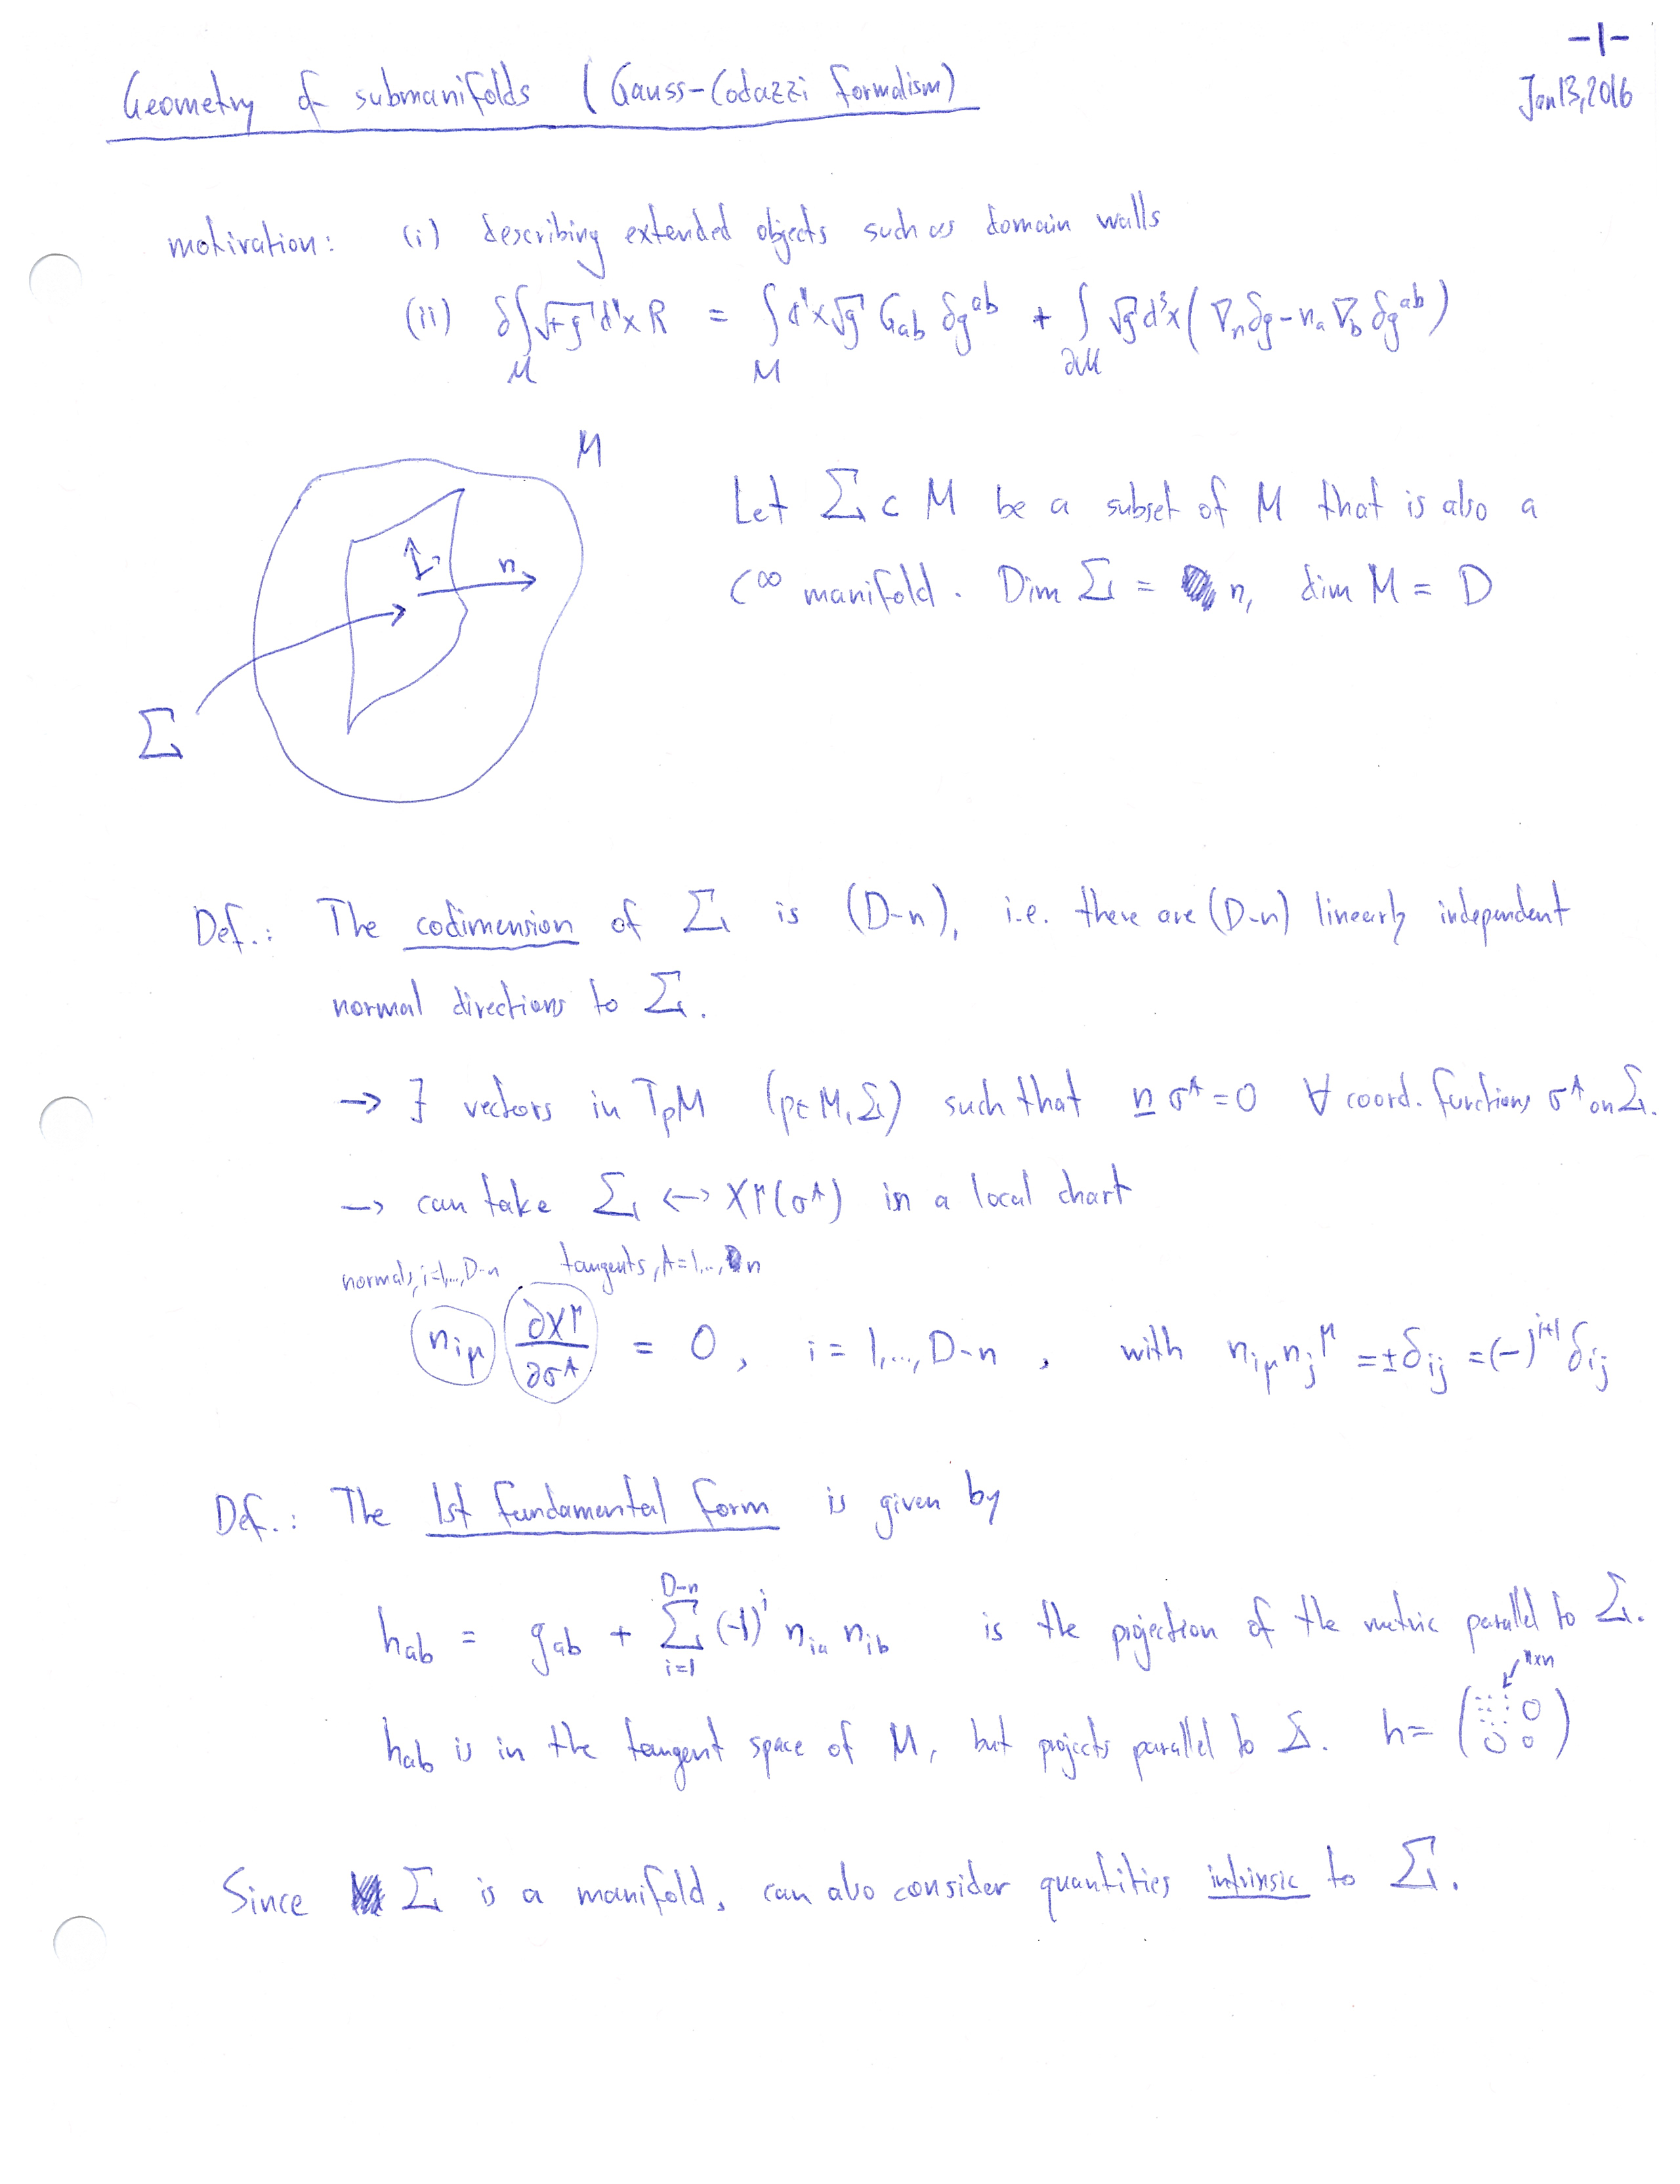 -1-
Jan 13, 2016
Geometry of submanifolds (Gauss-Codazzi formalism)
motivation: (i) describing extended objects such as domain walls
(ii) δ∫√-g d⁴x R = ∫d⁴x√g G_ab δg^ab + ∫√g d³x(∇_n δg - n_a ∇_b δg^ab)
M M ∂M
M
n
Σ
Let Σ ⊂ M be a subset of M that is also a
C^∞ manifold. Dim Σ = n, dim M = D
Def.: The codimension of Σ is (D-n), i.e. there are (D-n) linearly independent
normal directions to Σ.
→ ∃ vectors in T_pM (p∈M,Σ) such that n σ^A = 0 ∀ coord. functions σ^A on Σ.
→ can take Σ ↔ X^μ(σ^A) in a local chart
normals, i=1,..,D-n tangents, A=1,..,n
n_iμ ∂X^μ/∂σ^A = 0, i = 1,..., D-n, with n_iμ n_j^μ = ±δ_ij = (-)^{i+1} δ_ij
Def.: The 1st fundamental form is given by
h_ab = g_ab + Σ_{i=1}^{D-n} (-1)^i n_ia n_ib is the projection of the metric parallel to Σ.
n×n
h_ab is in the tangent space of M, but projects parallel to Σ. h = ( 0 0 0 )
Since Σ is a manifold, can also consider quantities intrinsic to Σ.